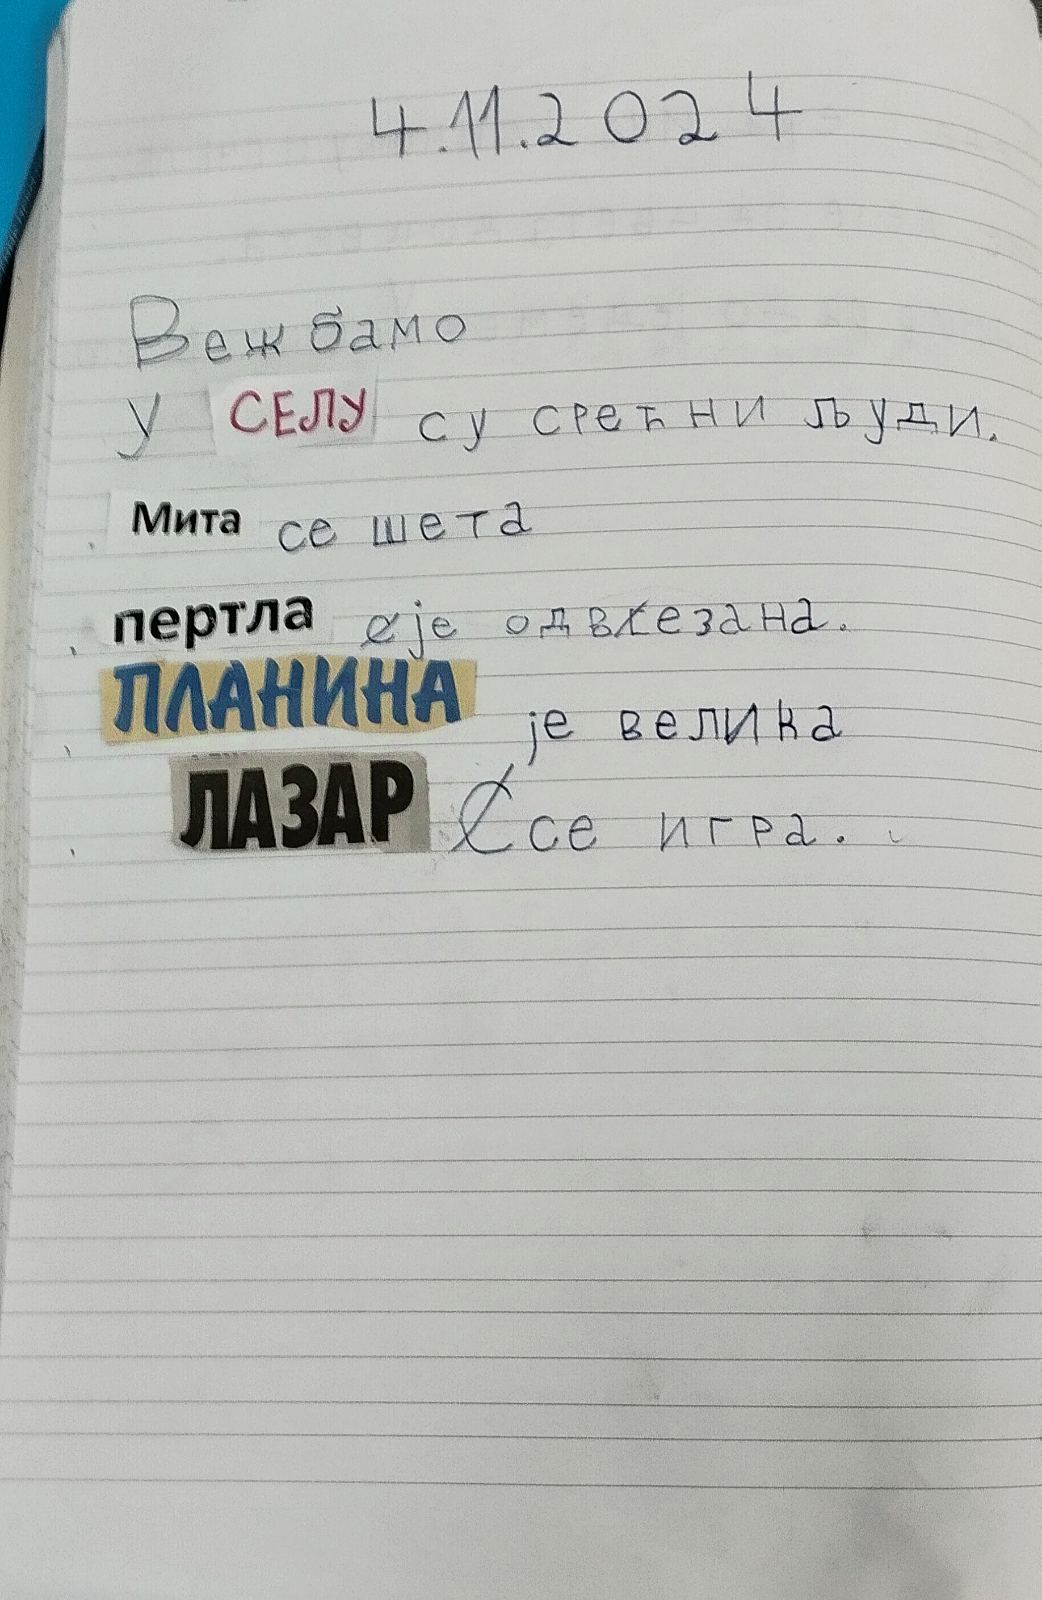 4.11.2024
Вежбамо
У СЕЛУ су срећни људи.
Мита се шета
пертла је одвезана.
ПЛАНИНА је велика
ЛАЗАР се игра.